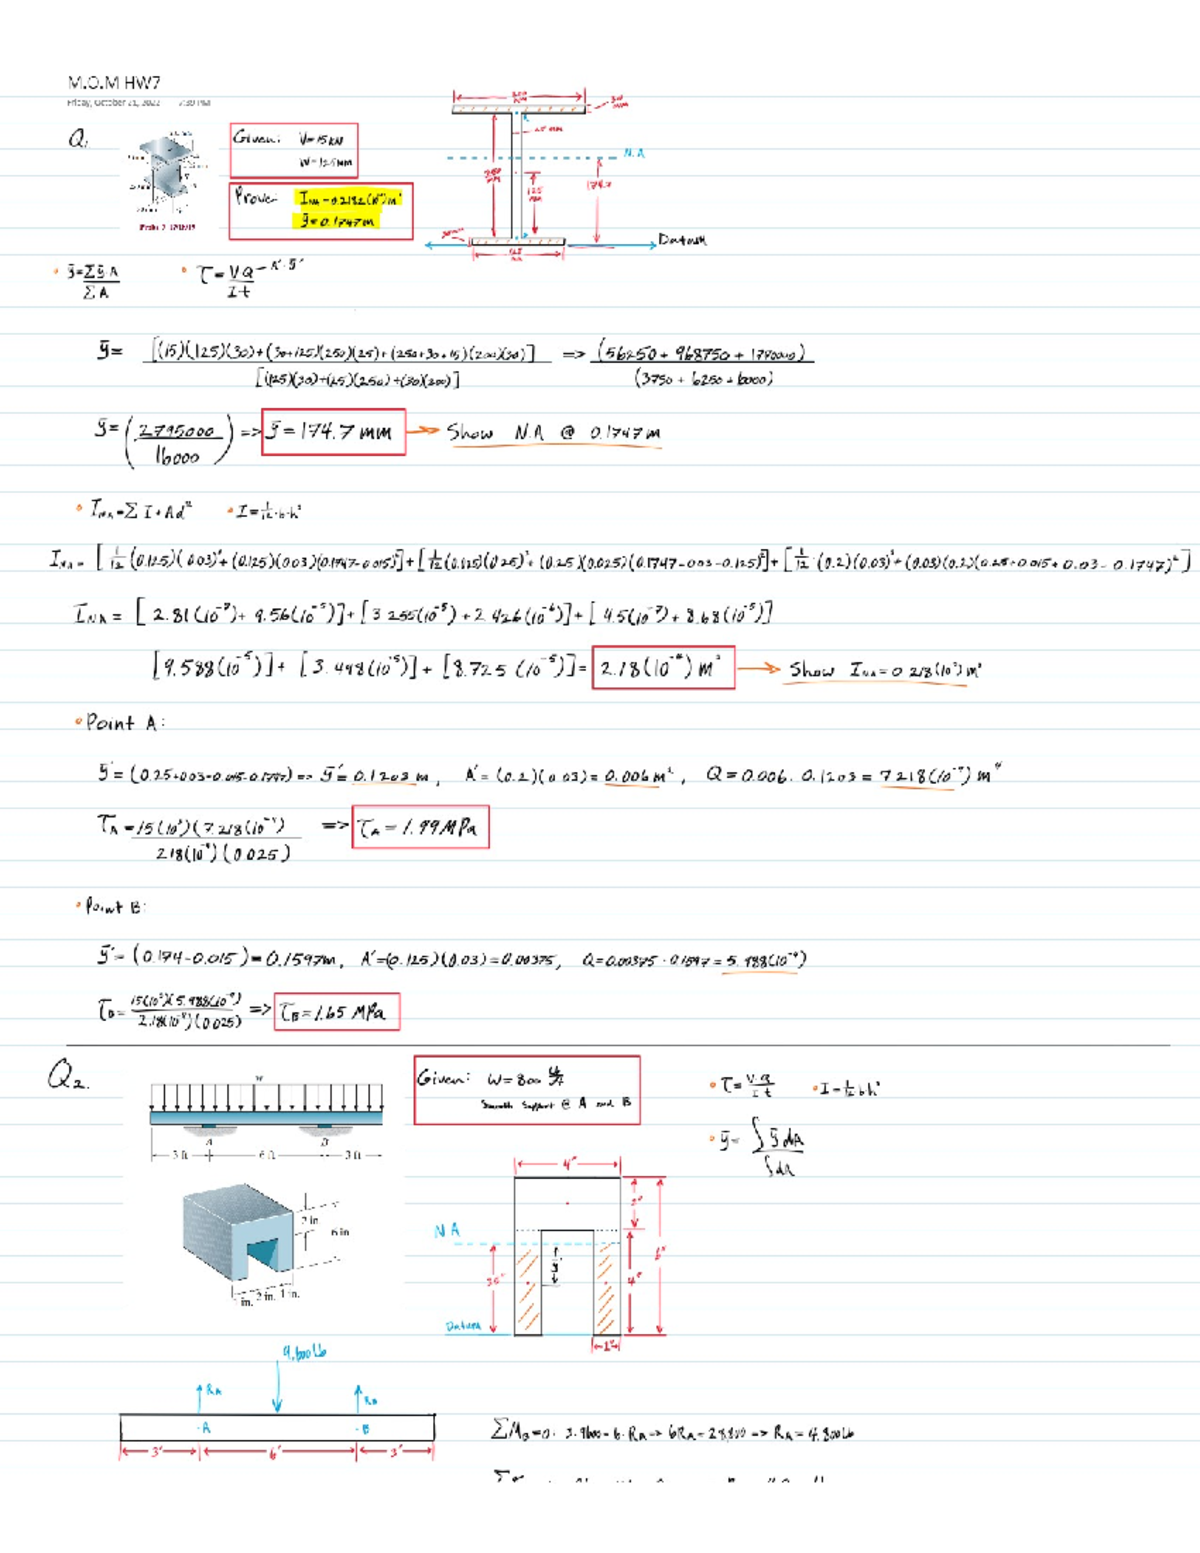 M.O.M HW7
Friday, October 21, 2022 7:39 PM
Q1
Given: V=15kN
W=125mm
Prove: I_NA=0.2182(10⁻³)m⁴
ȳ=0.1747m
200 mm
30 mm
25 mm
N.A
250 mm
125 mm
174.7
30mm
Datum
125 mm
• ȳ=ΣỹA/ΣA • τ=VQ/It - A'·ȳ'
ȳ= [(15)(125)(30)+(30+125)(250)(25)+(250+30+15)(200)(30)] / [(125)(30)+(25)(250)+(30)(200)] => (56250+968750+1770000) / (3750+6250+6000)
ȳ=(2795000/16000) => ȳ=174.7 mm → Show N.A @ 0.1747m
• I_NA=Σ I+Ad² • I=1/12·b·h³
I_NA= [1/12(0.125)(0.03)³+(0.125)(0.03)(0.1747-0.015)²]+[1/12(0.025)(0.25)³+(0.25)(0.025)(0.1747-0.03-0.125)²]+[1/12·(0.2)(0.03)³+(0.03)(0.2)(0.25+0.015+0.03-0.1747)²]
I_NA= [2.81(10⁻⁷)+9.56(10⁻⁵)]+[3.255(10⁻⁵)+2.426(10⁻⁶)]+[4.5(10⁻⁷)+8.68(10⁻⁵)]
[9.588(10⁻⁵)]+[3.498(10⁻⁵)]+[8.725(10⁻⁵)]= 2.18(10⁻⁴)m⁴ → Show I_NA=0.218(10⁻³)m⁴
• Point A:
ȳ'=(0.25+0.03+0.015-0.1747)=> ȳ'=0.1203m, A'=(0.2)(0.03)=0.006m², Q=0.006·0.1203=7.218(10⁻⁴)m⁴
τA=15(10³)(7.218(10⁻⁴)) / 2.18(10⁻⁴)(0.025) => τA=1.99MPa
• Point B:
ȳ'=(0.174-0.015)=0.1597m, A'=(0.125)(0.03)=0.00375, Q=0.00375·0.1597=5.988(10⁻⁴)
τB=15(10³)(5.988(10⁻⁴)) / 2.18(10⁻⁴)(0.025) => τB=1.65 MPa
Q2.
w
A B
3 ft 6 ft 3 ft
Given: W=800 lb/ft
Smooth Support @ A and B
• τ=V·Q/It • I=1/12bh³
• ȳ=∫ỹdA/∫dA
2 in.
6 in.
1 in. 2 in. 1 in.
4"
2"
6"
4"
NA
Datum
1"
9,600lb
RA
RB
·A ·B
3' 6' 3'
ΣM_B=0: 3·9600-6·RA→6RA=28,800→RA=4,800lb